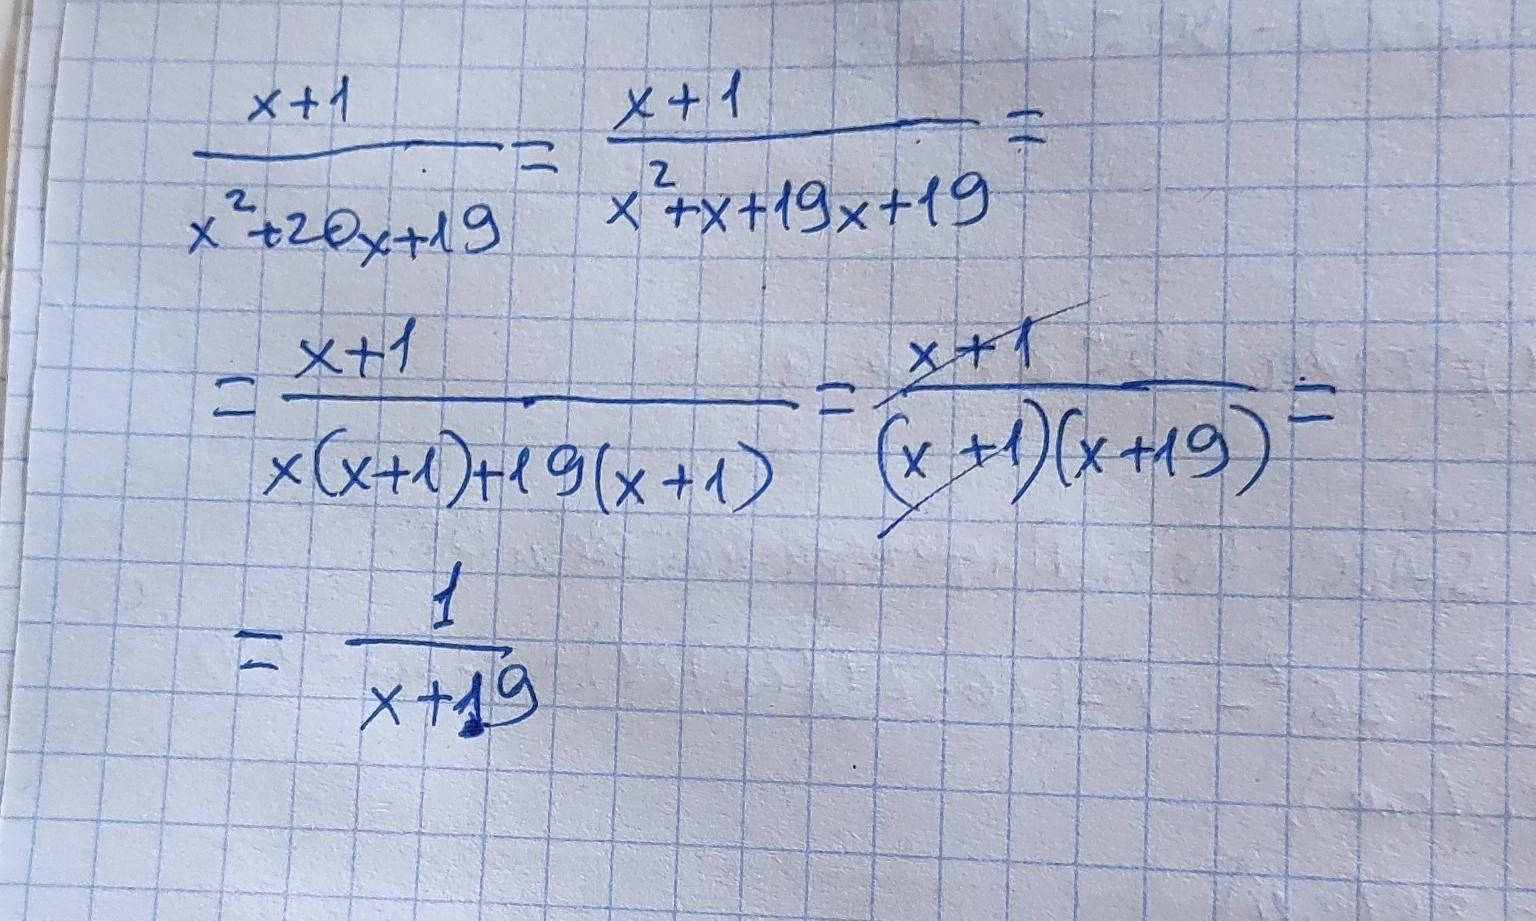 x+1/x²+20x+19 = x+1/x²+x+19x+19 =
= x+1/x(x+1)+19(x+1) = x+1/(x+1)(x+19) =
= 1/x+19